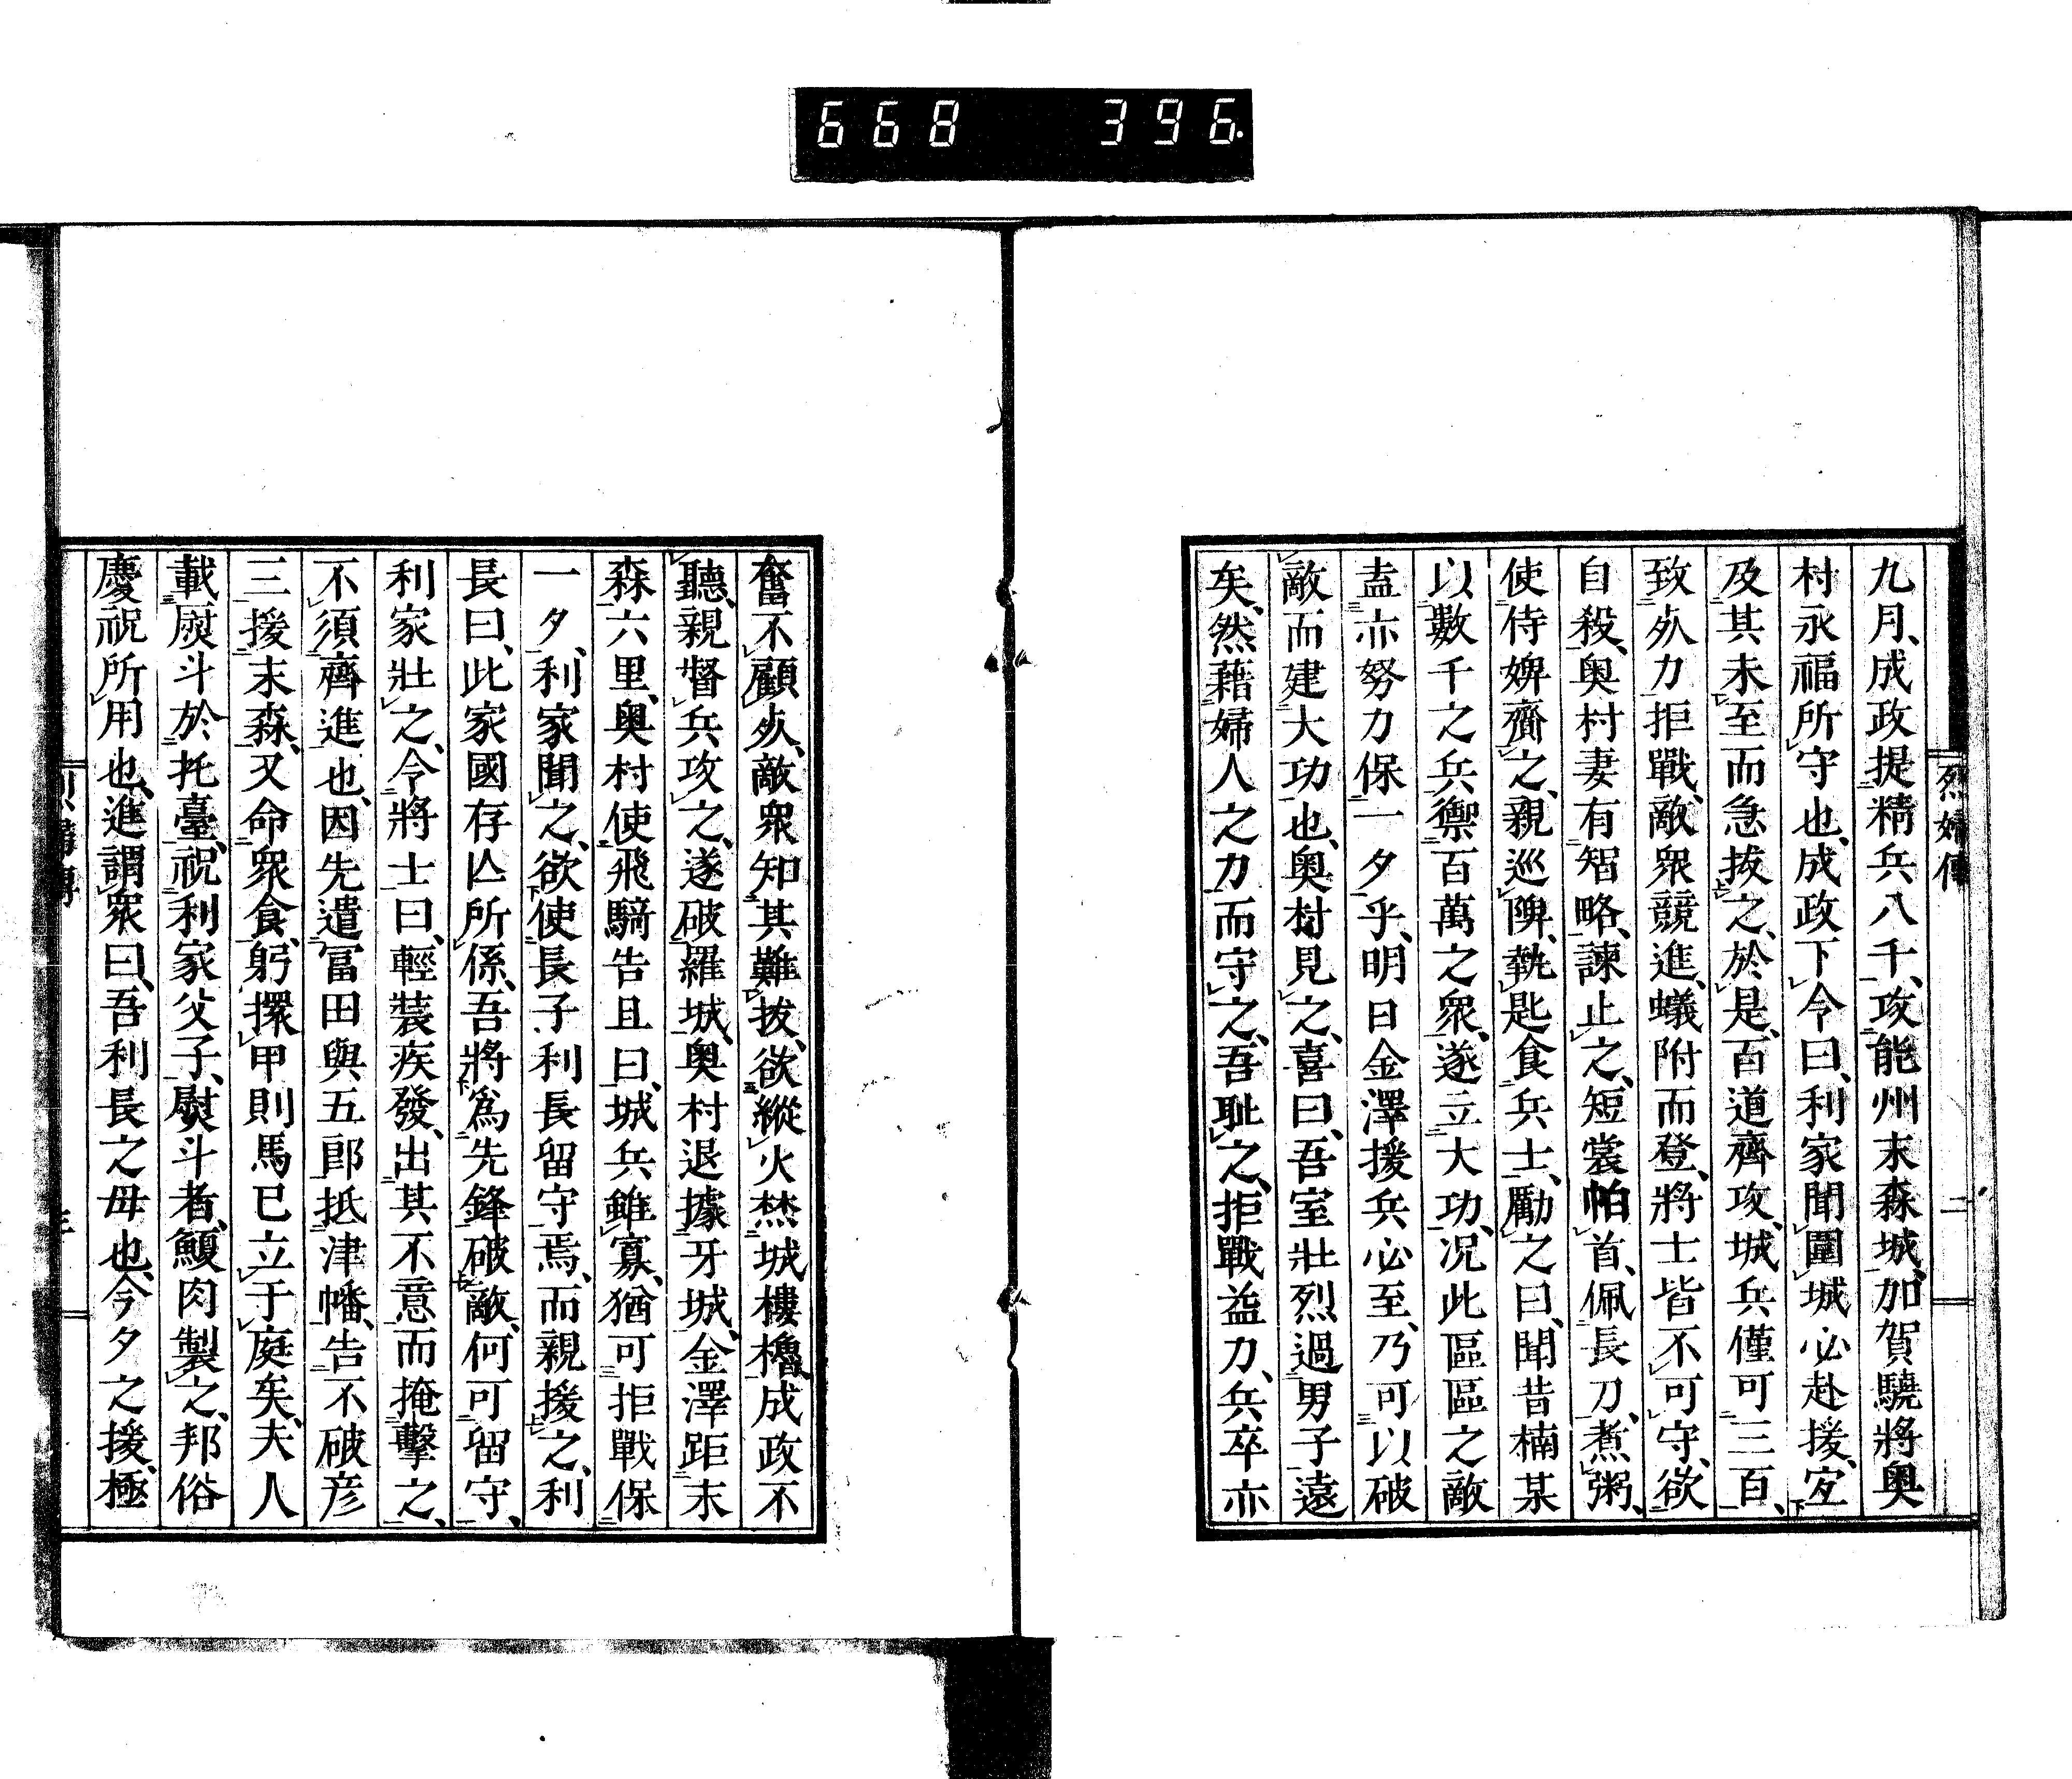 668 396.
烈婦傳 二
九月、成政提精兵八千、攻能州末森城、加賀驍將奧
村永福所守也、成政下令曰、利家聞圍城必赴援、宜
及其未至而急拔之、於是、百道齊攻、城兵僅可三百、
致死力拒戰、敵衆競進、蟻附而登、將士皆不可守、欲
自殺、奧村妻有智略、諫止之、短裳帕首、佩長刀、煮粥、
使侍婢齎之、親巡陴、執匙食兵士、勵之曰、聞昔楠某
以數千之兵禦百萬之衆、遂立大功、况此區區之敵
盍亦努力保一夕乎、明日金澤援兵必至、乃可以破
敵而建大功也、奧村見之、喜曰、吾室壯烈過男子遠
矣、然藉婦人之力而守之、吾耻之、拒戰益力、兵卒亦
奮不顧死、敵衆知其難拔、欲縱火焚城樓櫓、成政不
聽、親督兵攻之、遂破羅城、奧村退據牙城、金澤距末
森六里、奧村使飛騎告且曰、城兵雖寡、猶可拒戰保
一夕、利家聞之、欲使長子利長留守焉、而親援之、利
長曰、此家國存亾所係、吾將爲先鋒破敵、何可留守、
利家壯之、令將士曰、輕裝疾發、出其不意而掩擊之、
不須齊進也、因先遣冨田與五郎抵津幡、告不破彦
三援末森、又命衆食、躬擐甲則馬已立于庭矣、夫人
載熨斗於托臺、祝利家父子、熨斗者、鰒肉製之、邦俗
慶祝所用也、進謂衆曰、吾利長之毋也、今夕之援、極